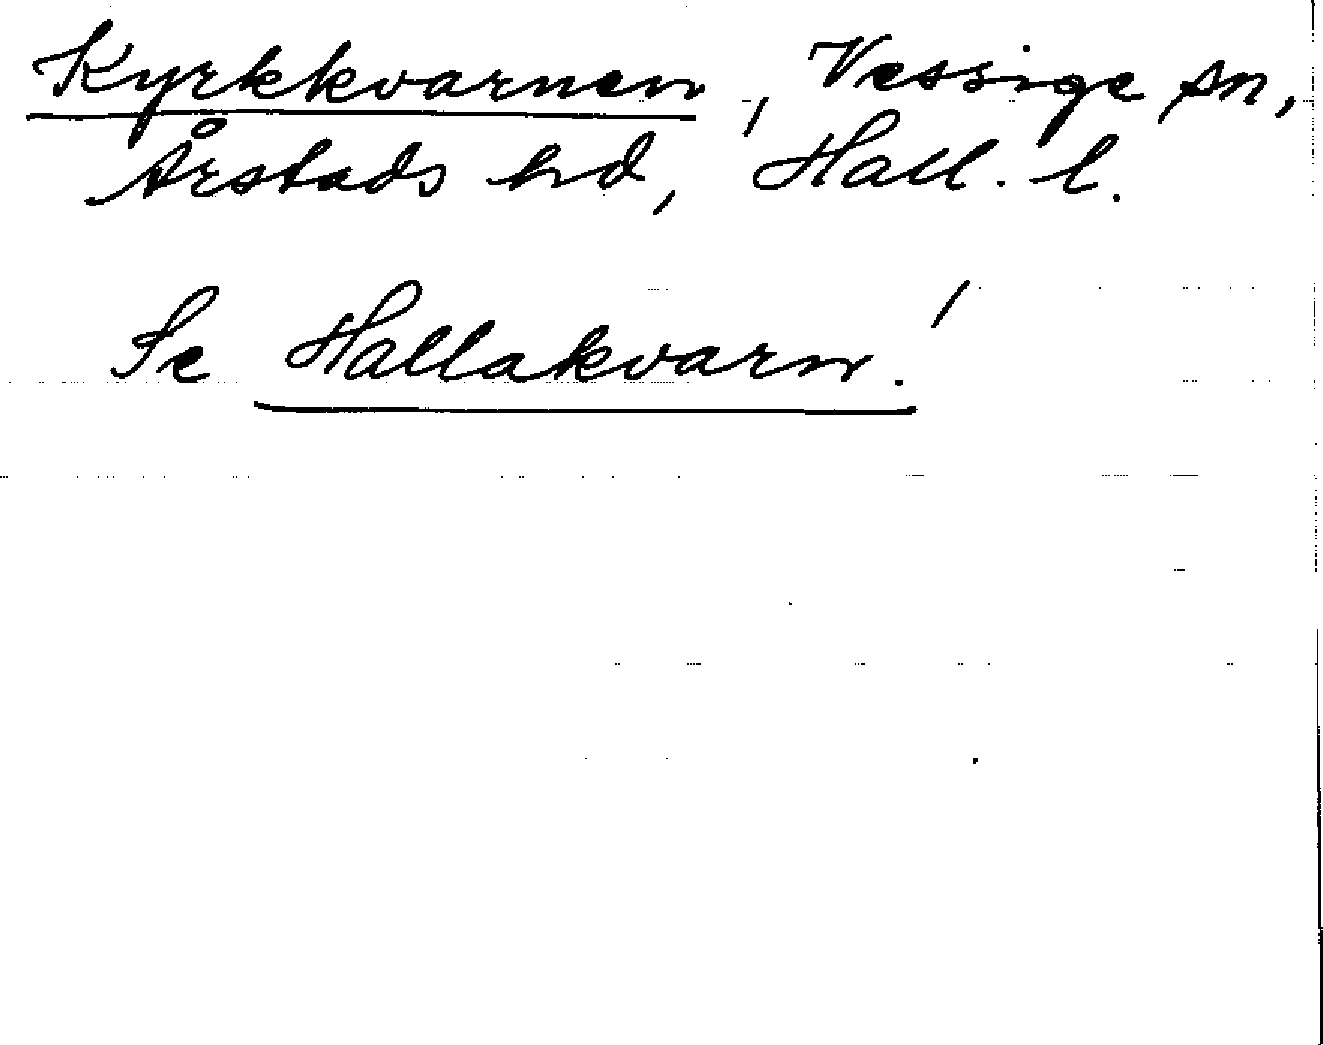 Kyrkkvarnen, Vessige sn,
Årstads hd, Hall. l.
Se Hallakvarn!